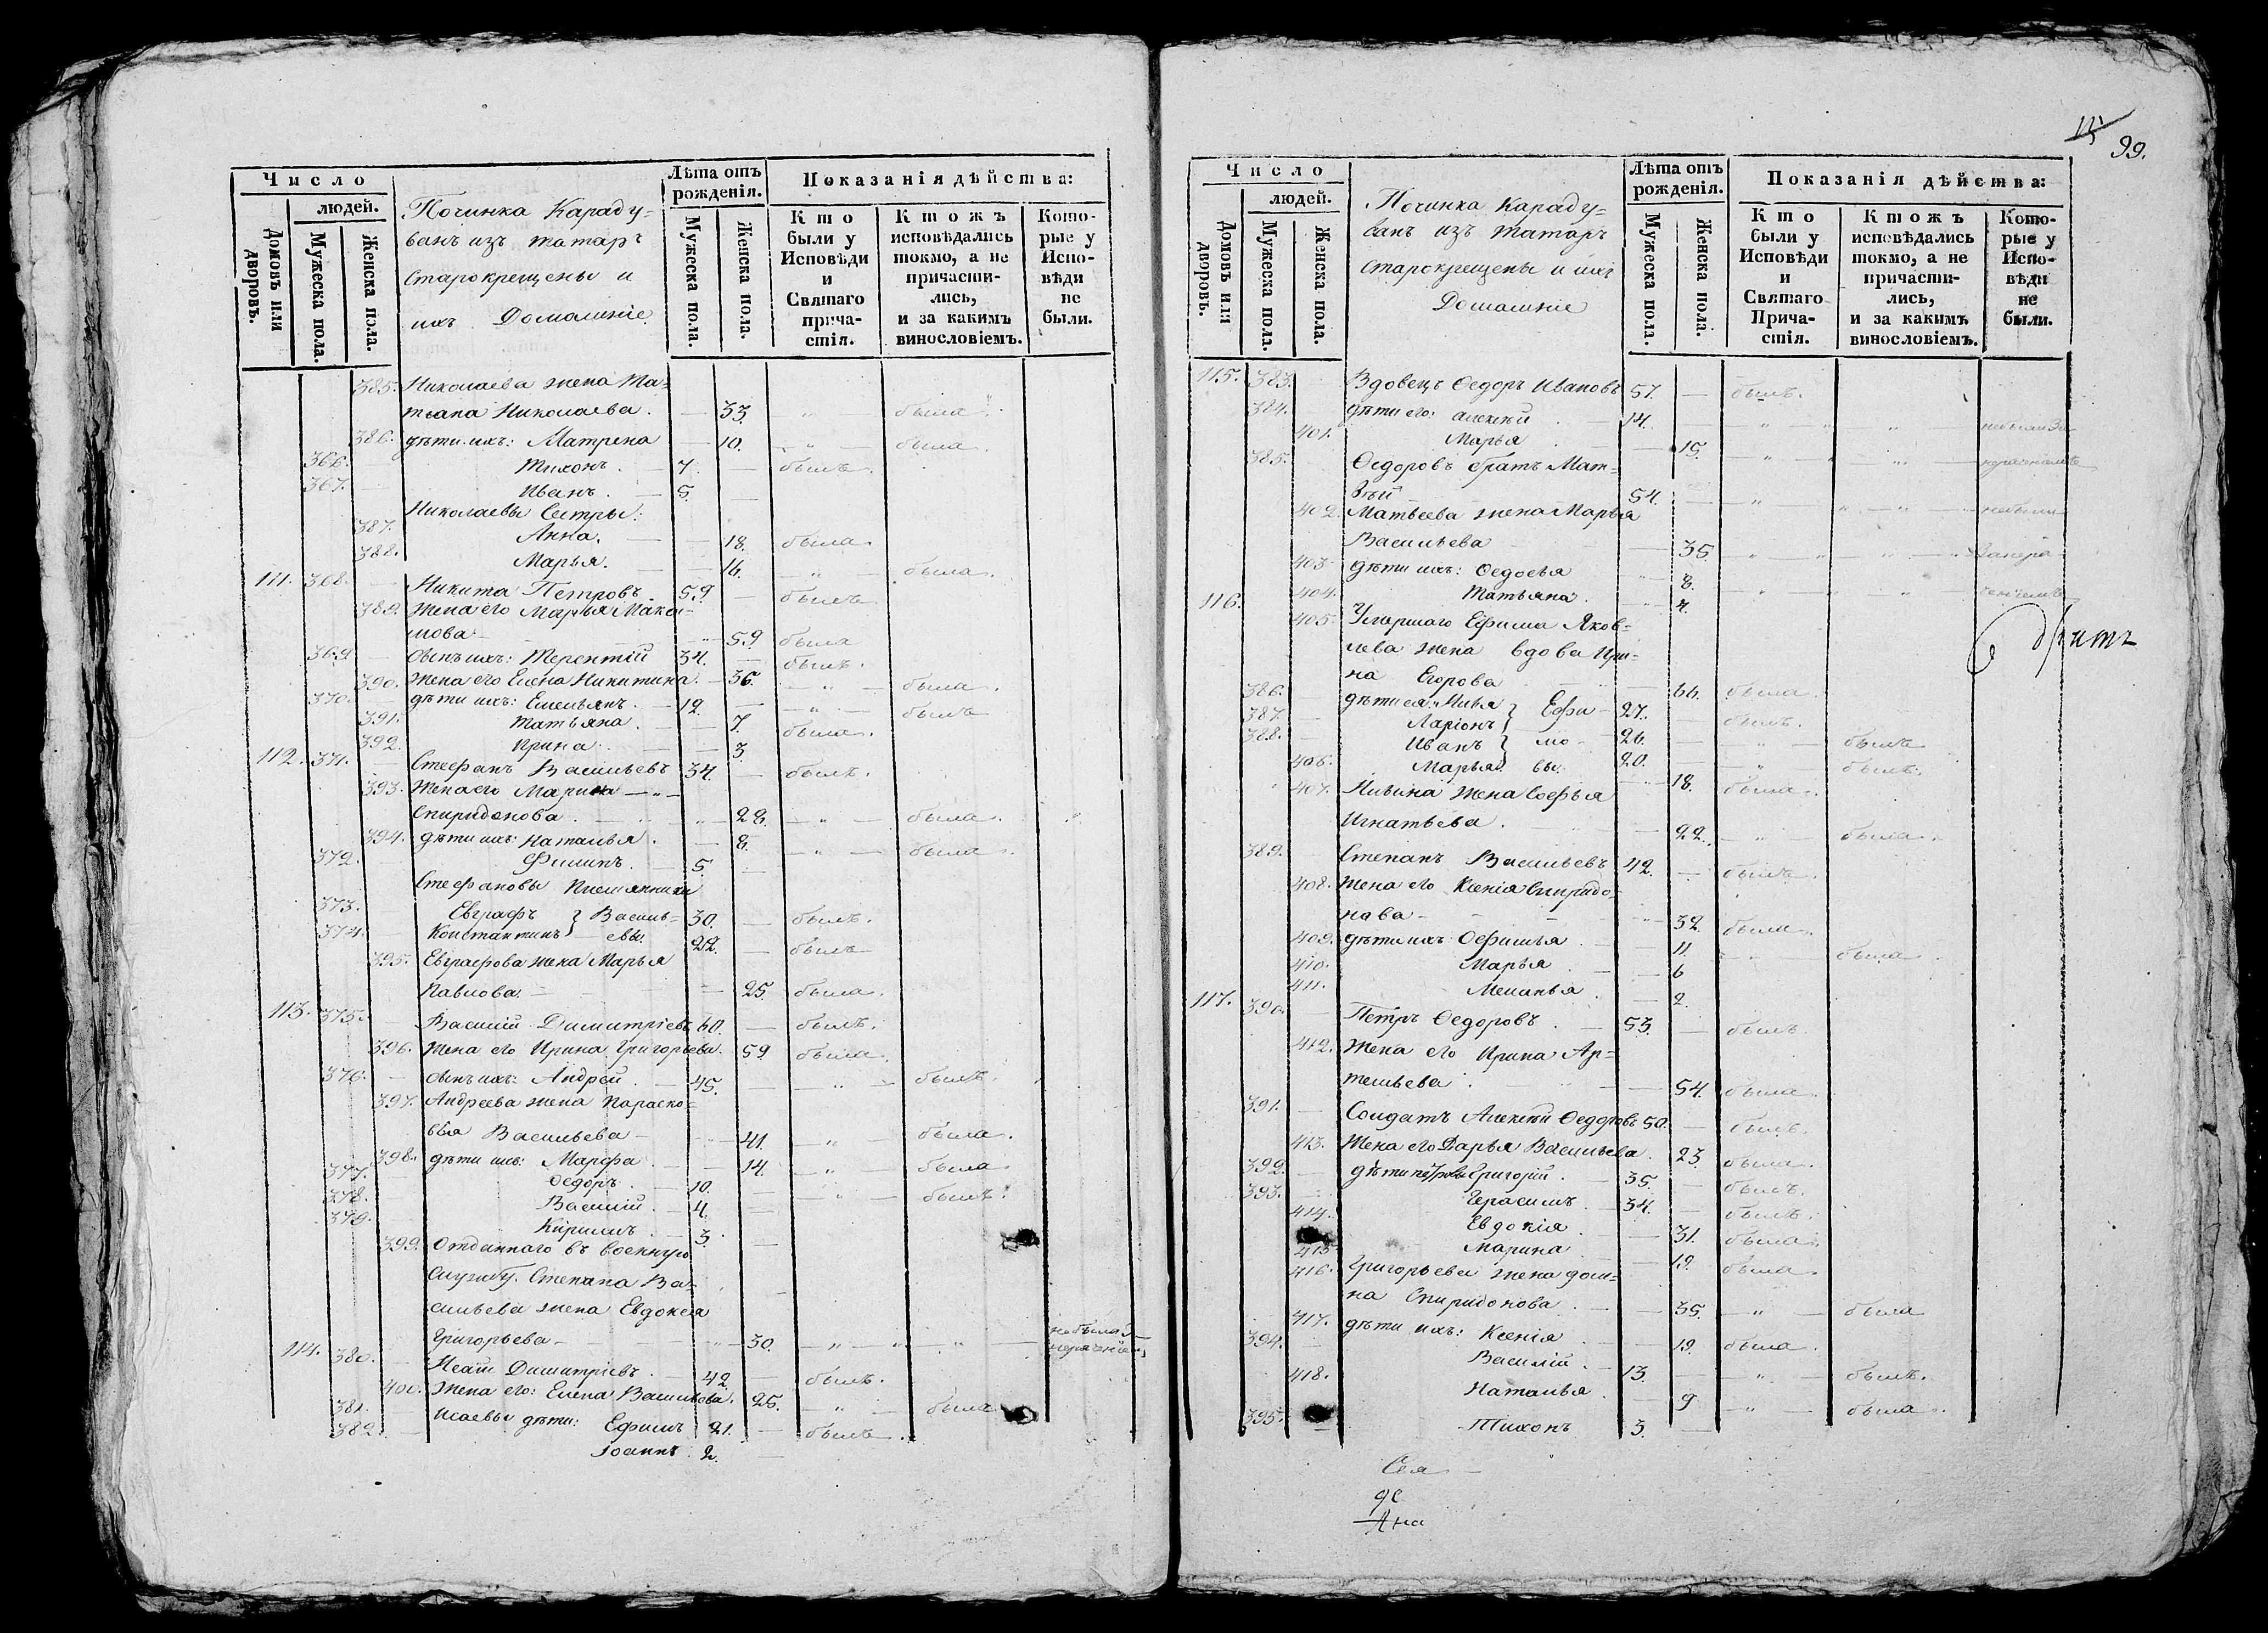 Число
людей.
Домовъ или дворовъ.
Мужеска пола.
Женска пола.
Починка Караду-
ванъ изъ татаръ
старокрещены и
ихъ Домашніе.
Лѣта отъ рожденія.
Мужеска пола.
Женска пола.
Показанія дѣйства:
Кто были у Исповѣди и Святаго причастія.
Ктожъ исповѣдались токмо, а не причастились, и за какимъ винословіемъ.
Которые у Исповѣди не были.
385. Николаева жена Та-
тьяна Николаева. — 33. — " — была.
386. дѣти ихъ: Матрена — 10. — " — была.
366. Тихонъ. — 7. — былъ.
367. Иванъ. — 5. —
Николаевы Сестры:
387. Анна. — — 18. была.
388. Марья. — — 16. — " — была.
111. 368. — Никита Петровъ. 59. — былъ
389. Жена его Марья Макси-
мова — 59 была
369 — Сынъ ихъ: Терентій 34. — былъ.
390. Жена его Елена Никитина. — 36. — " — была.
370. дѣти ихъ: Емельянъ. — 12. — — " — былъ
391. Татьяна. — — 7. была.
392. Ирина. — — 3.
112. 371. — Стефанъ Васильевъ 34. — былъ.
393. Жена его Марина — " —
Спиридонова. — 28. — " — была.
394. дѣти ихъ: Наталья. — 8. — " — была.
372. Филипъ. 5. —
Стефановы Племянники
373. Евграфъ } Василь- 30. — былъ.
374. Константинъ } евы. 22. — былъ
395. Евграфова жена Марья
Павлова. — 25. была.
113. 375. — Василій Димитріевъ 60. — былъ.
396. Жена его Ирина Григорьева. 59 была.
376. — Сынъ ихъ: Андрей. — 45. — — " — былъ.
397. Андреева жена Параско-
вья Васильева — 41. — " — была.
398. дѣти ихъ: Марфа. — — 14. — " — была
377. Ѳедоръ. — 10. — " — былъ.
378. Василій. — 4. —
379. Кирилъ. — 3. —
399. Отданнаго въ военную
службу Степана Ва-
сильева жена Евдокея
Григорьева — " — 30. — " — " — " — не была
114. 380. — Исай Димитріевъ. 42. — былъ.
400. Жена его: Елена Васильева. 25. — " — была.
381. — Исаевы дѣти: Ефимъ 21. — былъ.
382. — Іоаннъ. 2. —
99.
Число
людей.
Домовъ или дворовъ.
Мужеска пола.
Женска пола.
Починка Караду-
ванъ изъ татаръ
старокрещены и ихъ
Домашніе
Лѣта отъ рожденія.
Мужеска пола.
Женска пола.
Показанія дѣйства:
Кто были у Исповѣди и Святаго Причастія.
Ктожъ исповѣдались токмо, а не причастились, и за какимъ винословіемъ.
Которые у Исповѣди не были.
115. 383. — Вдовецъ Ѳедоръ Ивановъ 57. — былъ.
384. дѣти его: Алексѣй. — 14. — " — " — "
401. Марья — 15.
385. Ѳедоровъ братъ Мат-
вѣй 54. — "
402. Матвеева жена Марья
Васильева — 35
403. дѣти ихъ: Ѳедосья — 8.
404. Татьяна. — 4.
116. 405. Умершаго Ефима Яков-
лева жена вдова Ири-
на Егорова — 66. была.
386. — дѣти ея: Илья } Ефи- 27. — былъ.
387. — Ларіонъ } 26. — " — былъ
388. — Иванъ } мо- 20. — " — былъ.
406. Марья } вы. — 18. была.
407. Ильина жена Софья
Игнатьева. — 22. — " — была.
389. Степанъ Васильевъ 42. — былъ.
408. Жена его Ксенія Спиридо-
нова — 32. была.
409. дѣти ихъ: Ѳефимья. — 11. — была.
410. Марья. — 6
411. Меланья. — 2.
117. 390. — Петръ Ѳедоровъ. — 53. — былъ.
412. Жена его Ирина Ар-
темьева. — 54. была
391. — Солдатъ Алексѣй Ѳедоровъ 50. — былъ.
413. Жена его Дарья Васильева. 23. была.
392. — дѣти Петровы: Григорій. — 35. — былъ.
393. — Герасимъ. 34. — былъ.
414. Евдокія. — 31. была.
415. Марина. — 19. была.
416. Григорьева жена Дом-
на Спиридонова. — 35. — " — была
417. дѣти ихъ: Ксенія. — 19. была.
394. — Василій. — 13. — " — былъ.
418. Наталья. — 9 — " — была.
395. — Тихонъ 3. —